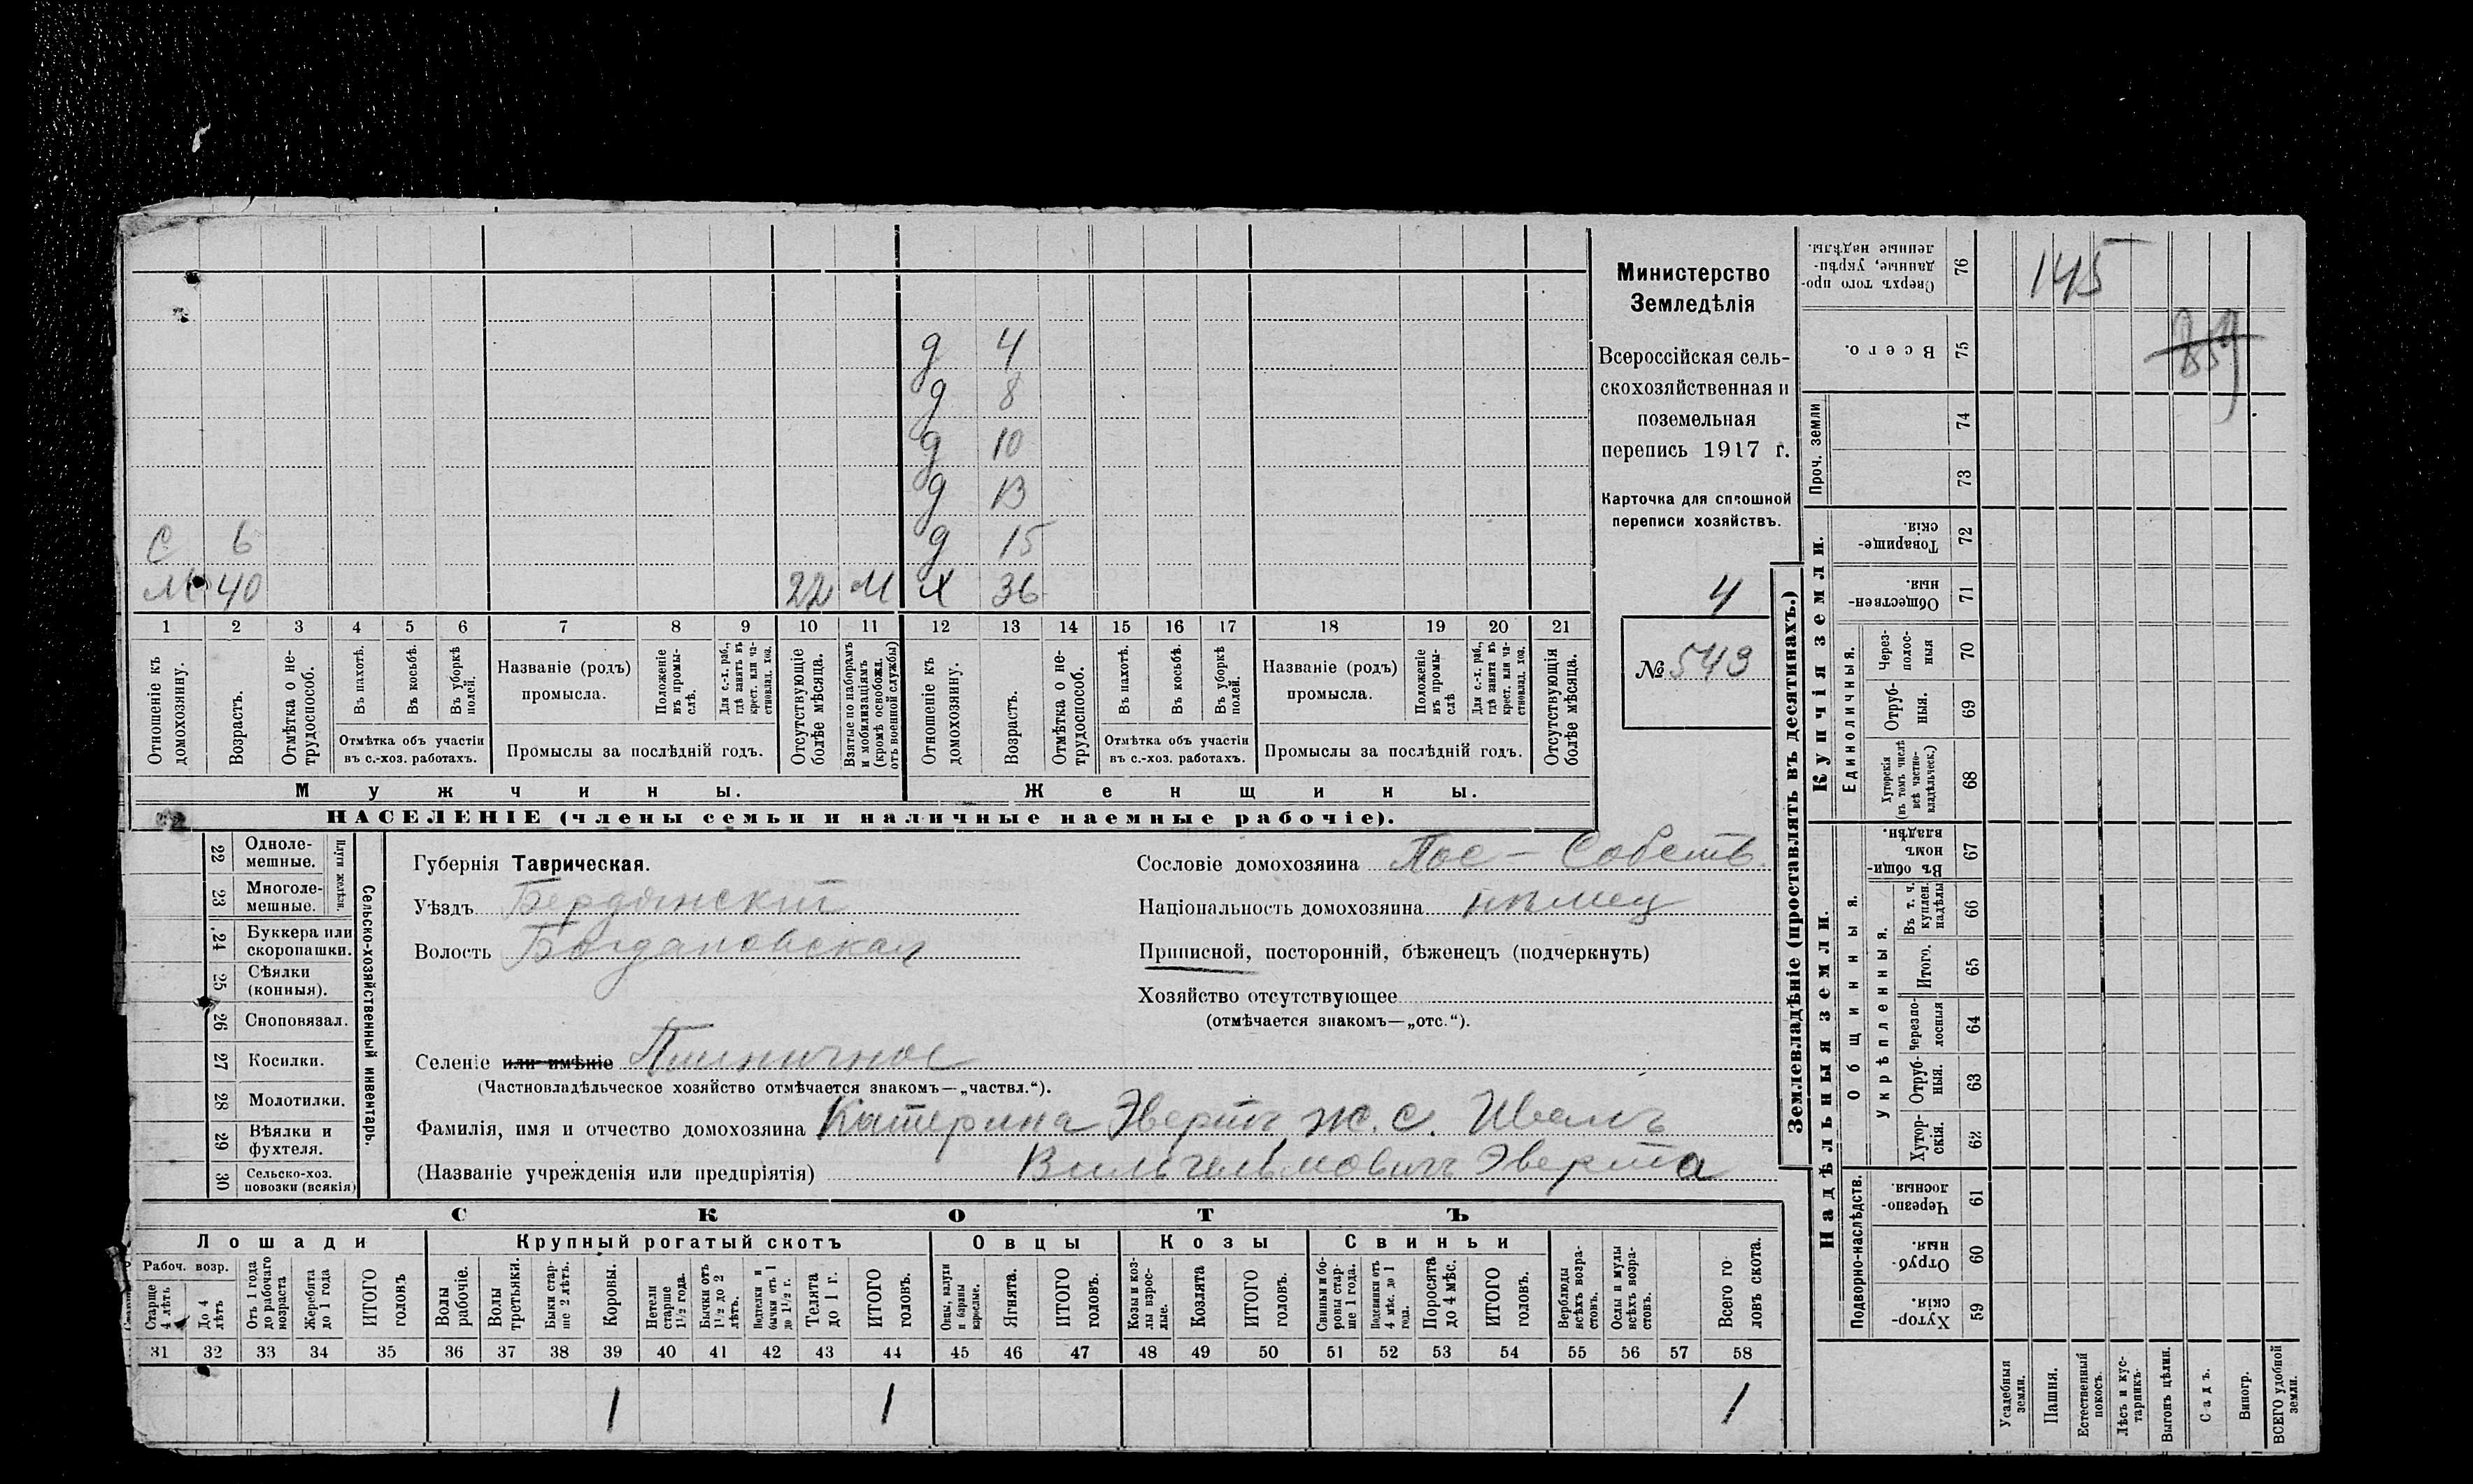 д 4
д 8
д 10
д 13
С 6 д 15
М 40 22 М Х 36
1 2 3 4 5 6 7 8 9 10 11 12 13 14 15 16 17 18 19 20 21
Отношеніе къ домохозяину.
Возрастъ.
Отмѣтка о не-трудоспособ.
Въ пахотѣ.
Въ косьбѣ.
Въ уборкѣ полей.
Отмѣтка объ участіи
въ с.-хоз. работахъ.
Названіе (родъ)
промысла.
Положеніе въ промы-слѣ.
Для с.-х. раб., гдѣ занятъ въ крест. или ча-стновлад. хоз.
Промыслы за послѣдній годъ.
Отсутствующіе болѣе мѣсяца.
Взятые по наборамъ и мобилизаціямъ (кромѣ освобожд. отъ военной службы)
Отношеніе къ домохозяину.
Возрастъ.
Отмѣтка о не-трудоспособ.
Въ пахотѣ.
Въ косьбѣ.
Въ уборкѣ полей.
Отмѣтка объ участіи
въ с.-хоз. работахъ.
Названіе (родъ)
промысла.
Положеніе въ промы-слѣ
Для с.-х. раб., гдѣ занята въ крест. или ча-стновлад. хоз.
Промыслы за послѣдній годъ.
Отсутствующія болѣе мѣсяца.
Мужчины. Женщины.
НАСЕЛЕНІЕ (члены семьи и наличные наемные рабочіе).
Министерство
Земледѣлія
Всероссійская сель-
скохозяйственная и
поземельная
перепись 1917 г.
Карточка для сплошной
переписи хозяйствъ.
4
№ 543
22 Одноле-мешные.
23 Многоле-мешные.
Плуги желѣзн.
24 Буккера или скоропашки.
25 Сѣялки (конныя).
26 Сноповязал.
27 Косилки.
28 Молотилки.
29 Вѣялки и фухтеля.
30 Сельско-хоз. повозки (всякія)
Сельско-хозяйственный инвентарь.
Губернія Таврическая.
Уѣздъ Бердянскій
Волость Богдановская
Селеніе или имѣніе Пшеничное
(Частновладѣльческое хозяйство отмѣчается знакомъ—„частвл.“).
Фамилія, имя и отчество домохозяина Катерина Эвертъ ж. с. Иванъ
(Названіе учрежденія или предпріятія) Вильгельмовичъ Эверта
Сословіе домохозяина Пос - Собств.
Національность домохозяина нѣмец
Приписной, посторонній, бѣженецъ (подчеркнуть)
Хозяйство отсутствующее
(отмѣчается знакомъ—„отс.“).
СКОТЪ
Лошади Крупный рогатый скотъ Овцы Козы Свиньи
Рабоч. возр.
Старше 4 лѣтъ
До 4 лѣтъ
Отъ 1 года до рабочаго возраста
Жеребята до 1 года
ИТОГО головъ
Волы рабочіе.
Волы третьяки.
Быки стар-ше 2 лѣтъ.
Коровы.
Нетели старше 1½ года.
Бычки отъ 1½ до 2 лѣтъ.
Подтелки и бычки отъ 1 до 1½ г.
Телята до 1 г.
ИТОГО головъ.
Овцы, валухи и бараны взрослые.
Ягнята.
ИТОГО головъ.
Козы и коз-лы взрос-лые.
Козлята
ИТОГО головъ.
Свиньи и бо-ровы стар-ше 1 года.
Подсвинки отъ 4 мѣс. до 1 года.
Поросята до 4 мѣс.
ИТОГО головъ.
Верблюды всѣхъ возра-стовъ.
Ослы и мулы всѣхъ возра-стовъ.
Всего го-ловъ скота.
31 32 33 34 35 36 37 38 39 40 41 42 43 44 45 46 47 48 49 50 51 52 53 54 55 56 57 58
1 1 1
Землевладѣніе (проставлять въ десятинахъ.)
Сверхъ того про-данные, укрѣп-ленные надѣлы. 76
145
Всего. 75
859
Проч. земли 74 73
Купчія земли.
Товарище-скія. 72
Обществен-ныя. 71
Единоличныя.
Через-полос-ныя 70
Отруб-ныя. 69
Хуторскія (въ томъ числѣ всѣ частно-владѣльческ.) 68
Надѣльныя земли.
Общинныя.
Въ общи-номъ владѣн. 67
Укрѣпленныя.
Въ т. ч. куплен. надѣлы 66
Итого. 65
Черезпо-лосныя 64
Отруб-ныя. 63
Хутор-скія. 62
Подворно-наслѣдств.
Черезпо-лосныя. 61
Отруб-ныя. 60
Хутор-скія. 59
Усадебныя земли.
Пашня.
Естественный покосъ.
Лѣсъ и кус-тарникъ.
Выгонъ цѣлин.
Садъ.
Виногр.
ВСЕГО удобной земли.